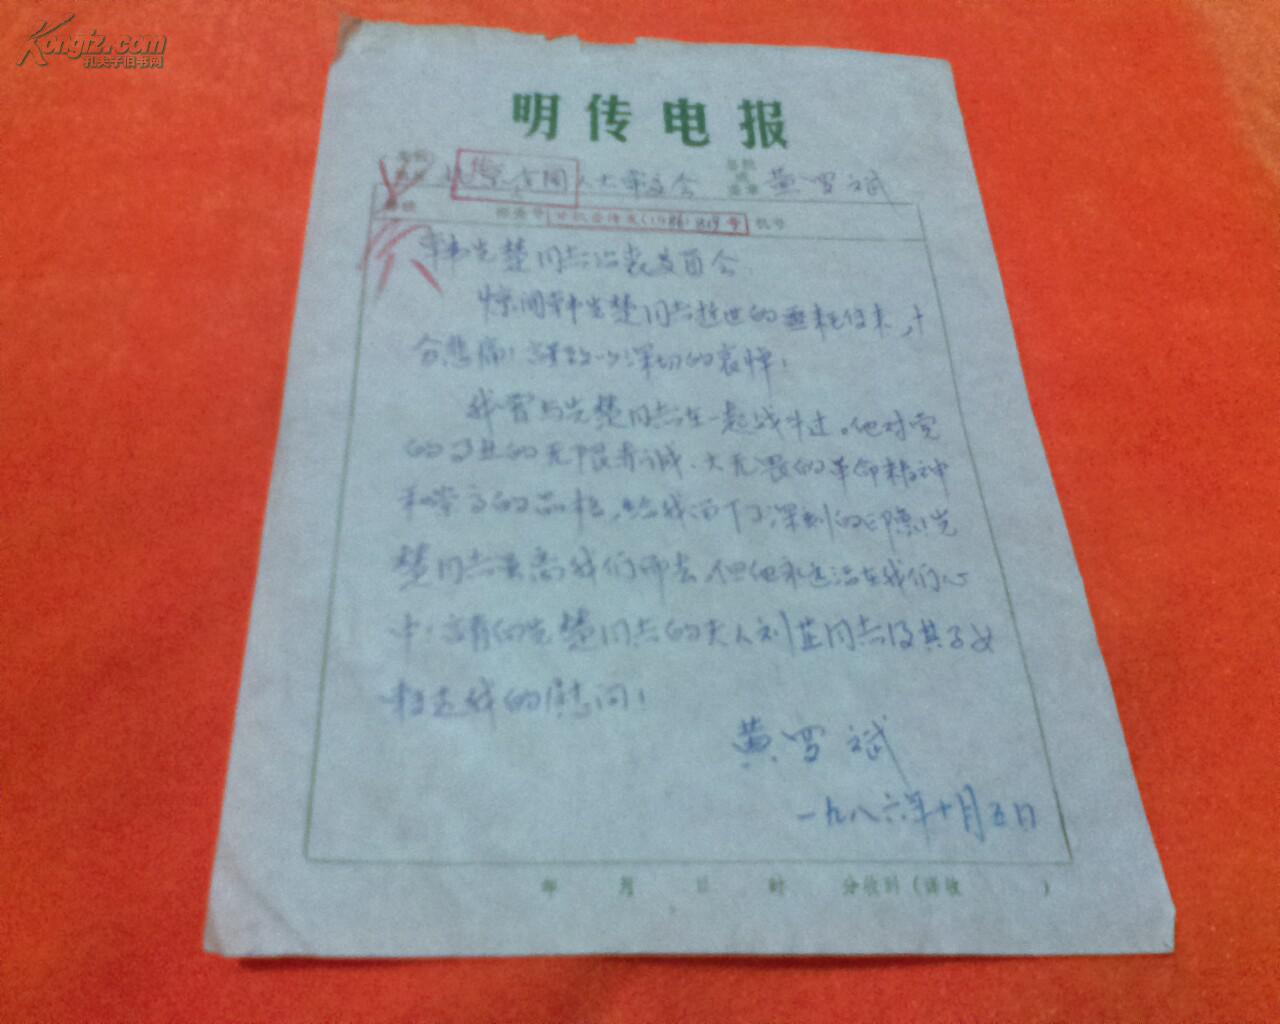 Kongfz.com
孔夫子旧书网
明传电报
人大常委会 黄罗斌
(1986) 819号 机号
韩先楚同志治丧委员会
惊闻韩先楚同志逝世的噩耗传来,十
分悲痛!致以深切的哀悼!
我曾与先楚同志在一起战斗过。他对党
的事业的无限忠诚、大无畏的革命精神
和崇高的品格,给我留下了深刻的印象!先
楚同志虽离我们而去,但他永远活在我们心
中!请向先楚同志的夫人刘芷同志及其子女
转达我的慰问!
黄罗斌
一九八六年十月五日
年 月 日 时 分收到(译收 )